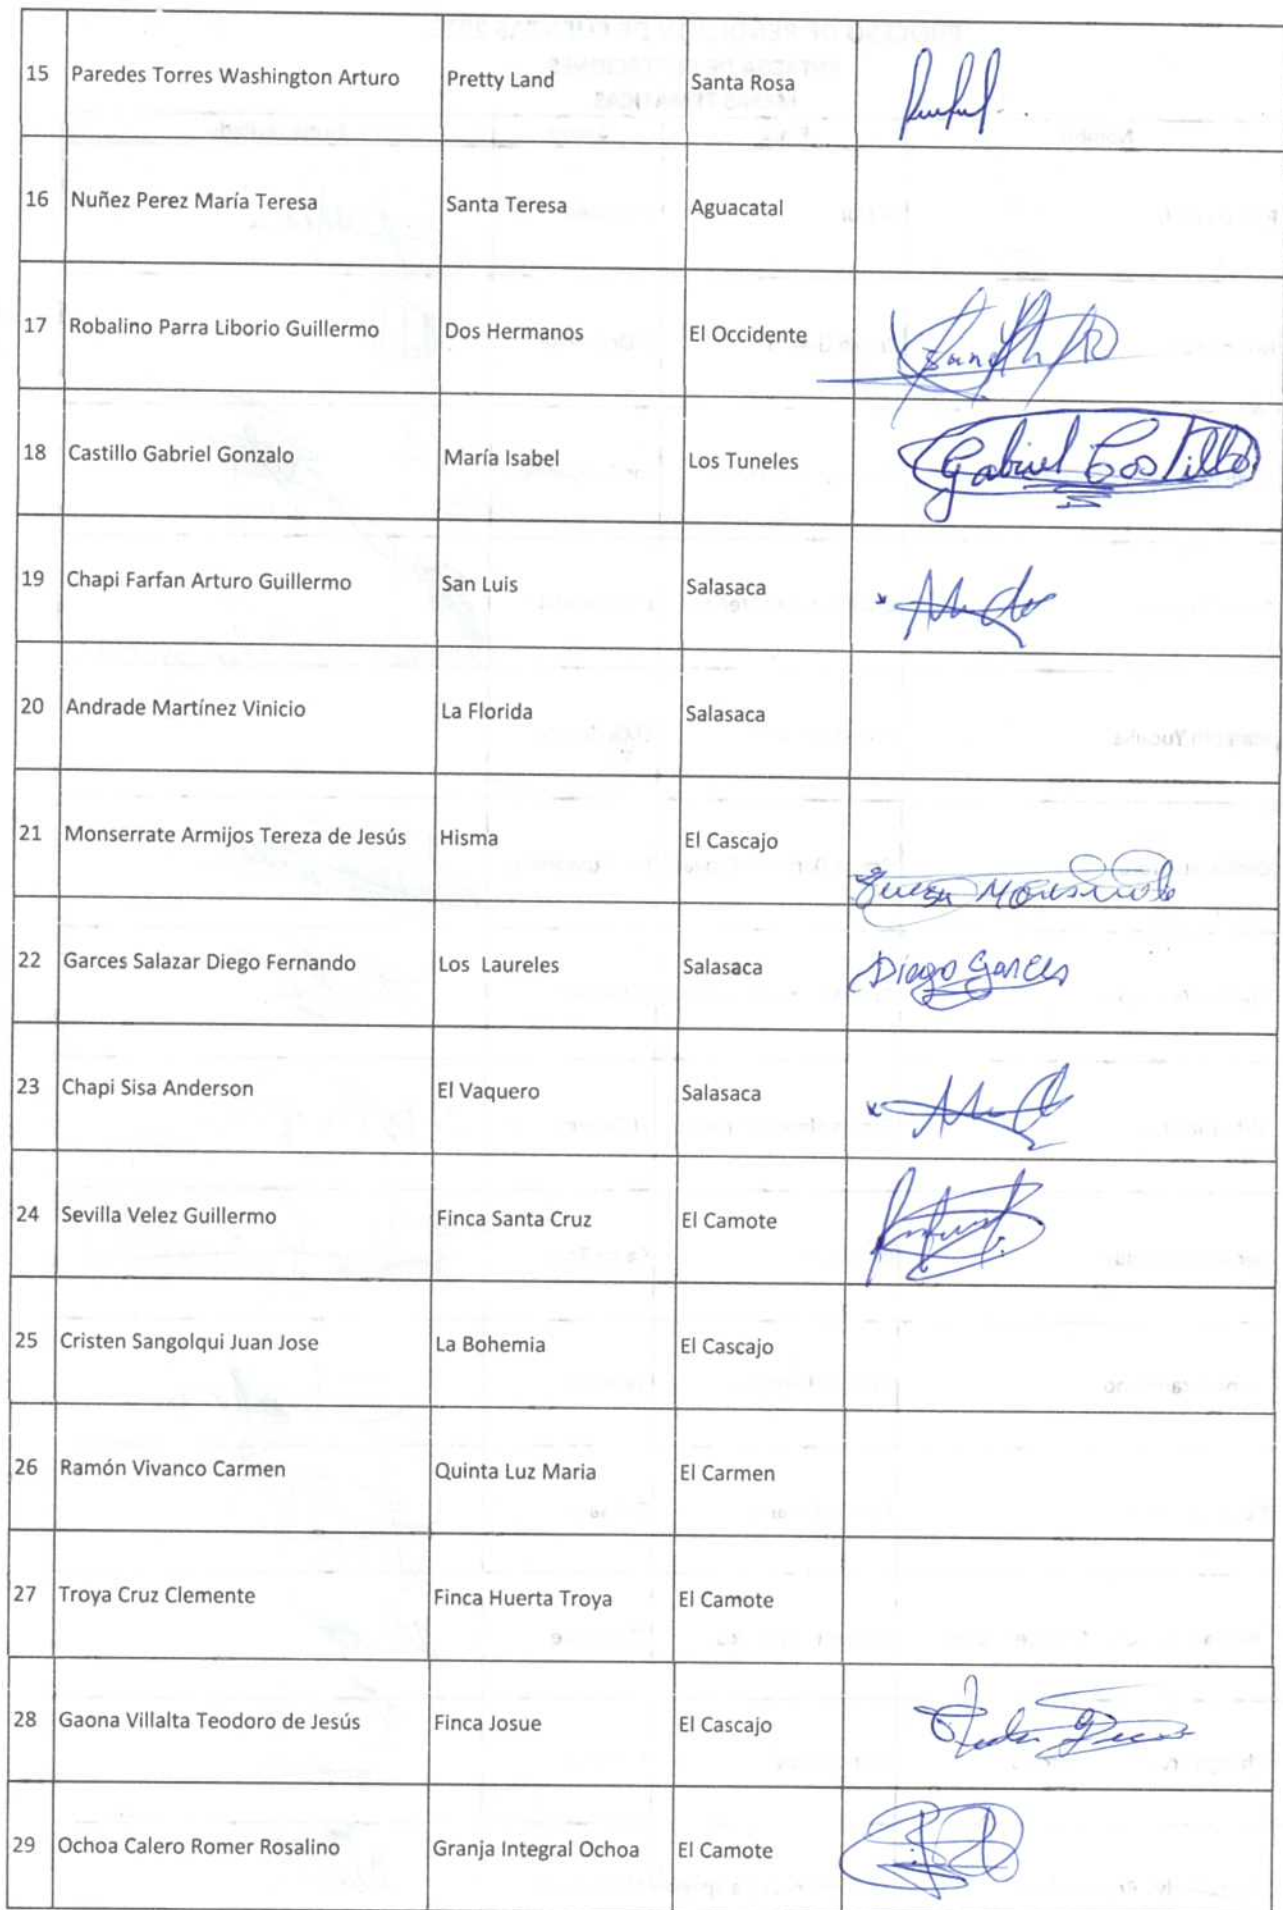 15 Paredes Torres Washington Arturo Pretty Land Santa Rosa
16 Nuñez Perez María Teresa Santa Teresa Aguacatal
17 Robalino Parra Liborio Guillermo Dos Hermanos El Occidente
18 Castillo Gabriel Gonzalo María Isabel Los Tuneles Gabriel Castillo
19 Chapi Farfan Arturo Guillermo San Luis Salasaca
20 Andrade Martínez Vinicio La Florida Salasaca
21 Monserrate Armijos Tereza de Jesús Hisma El Cascajo
22 Garces Salazar Diego Fernando Los Laureles Salasaca Diego Garces
23 Chapi Sisa Anderson El Vaquero Salasaca
24 Sevilla Velez Guillermo Finca Santa Cruz El Camote
25 Cristen Sangolqui Juan Jose La Bohemia El Cascajo
26 Ramón Vivanco Carmen Quinta Luz Maria El Carmen
27 Troya Cruz Clemente Finca Huerta Troya El Camote
28 Gaona Villalta Teodoro de Jesús Finca Josue El Cascajo
29 Ochoa Calero Romer Rosalino Granja Integral Ochoa El Camote